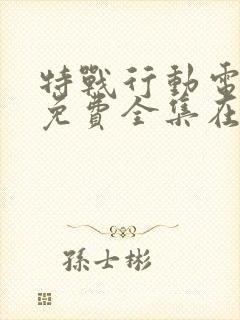 特戰行動電
免費全集在
孫士彬